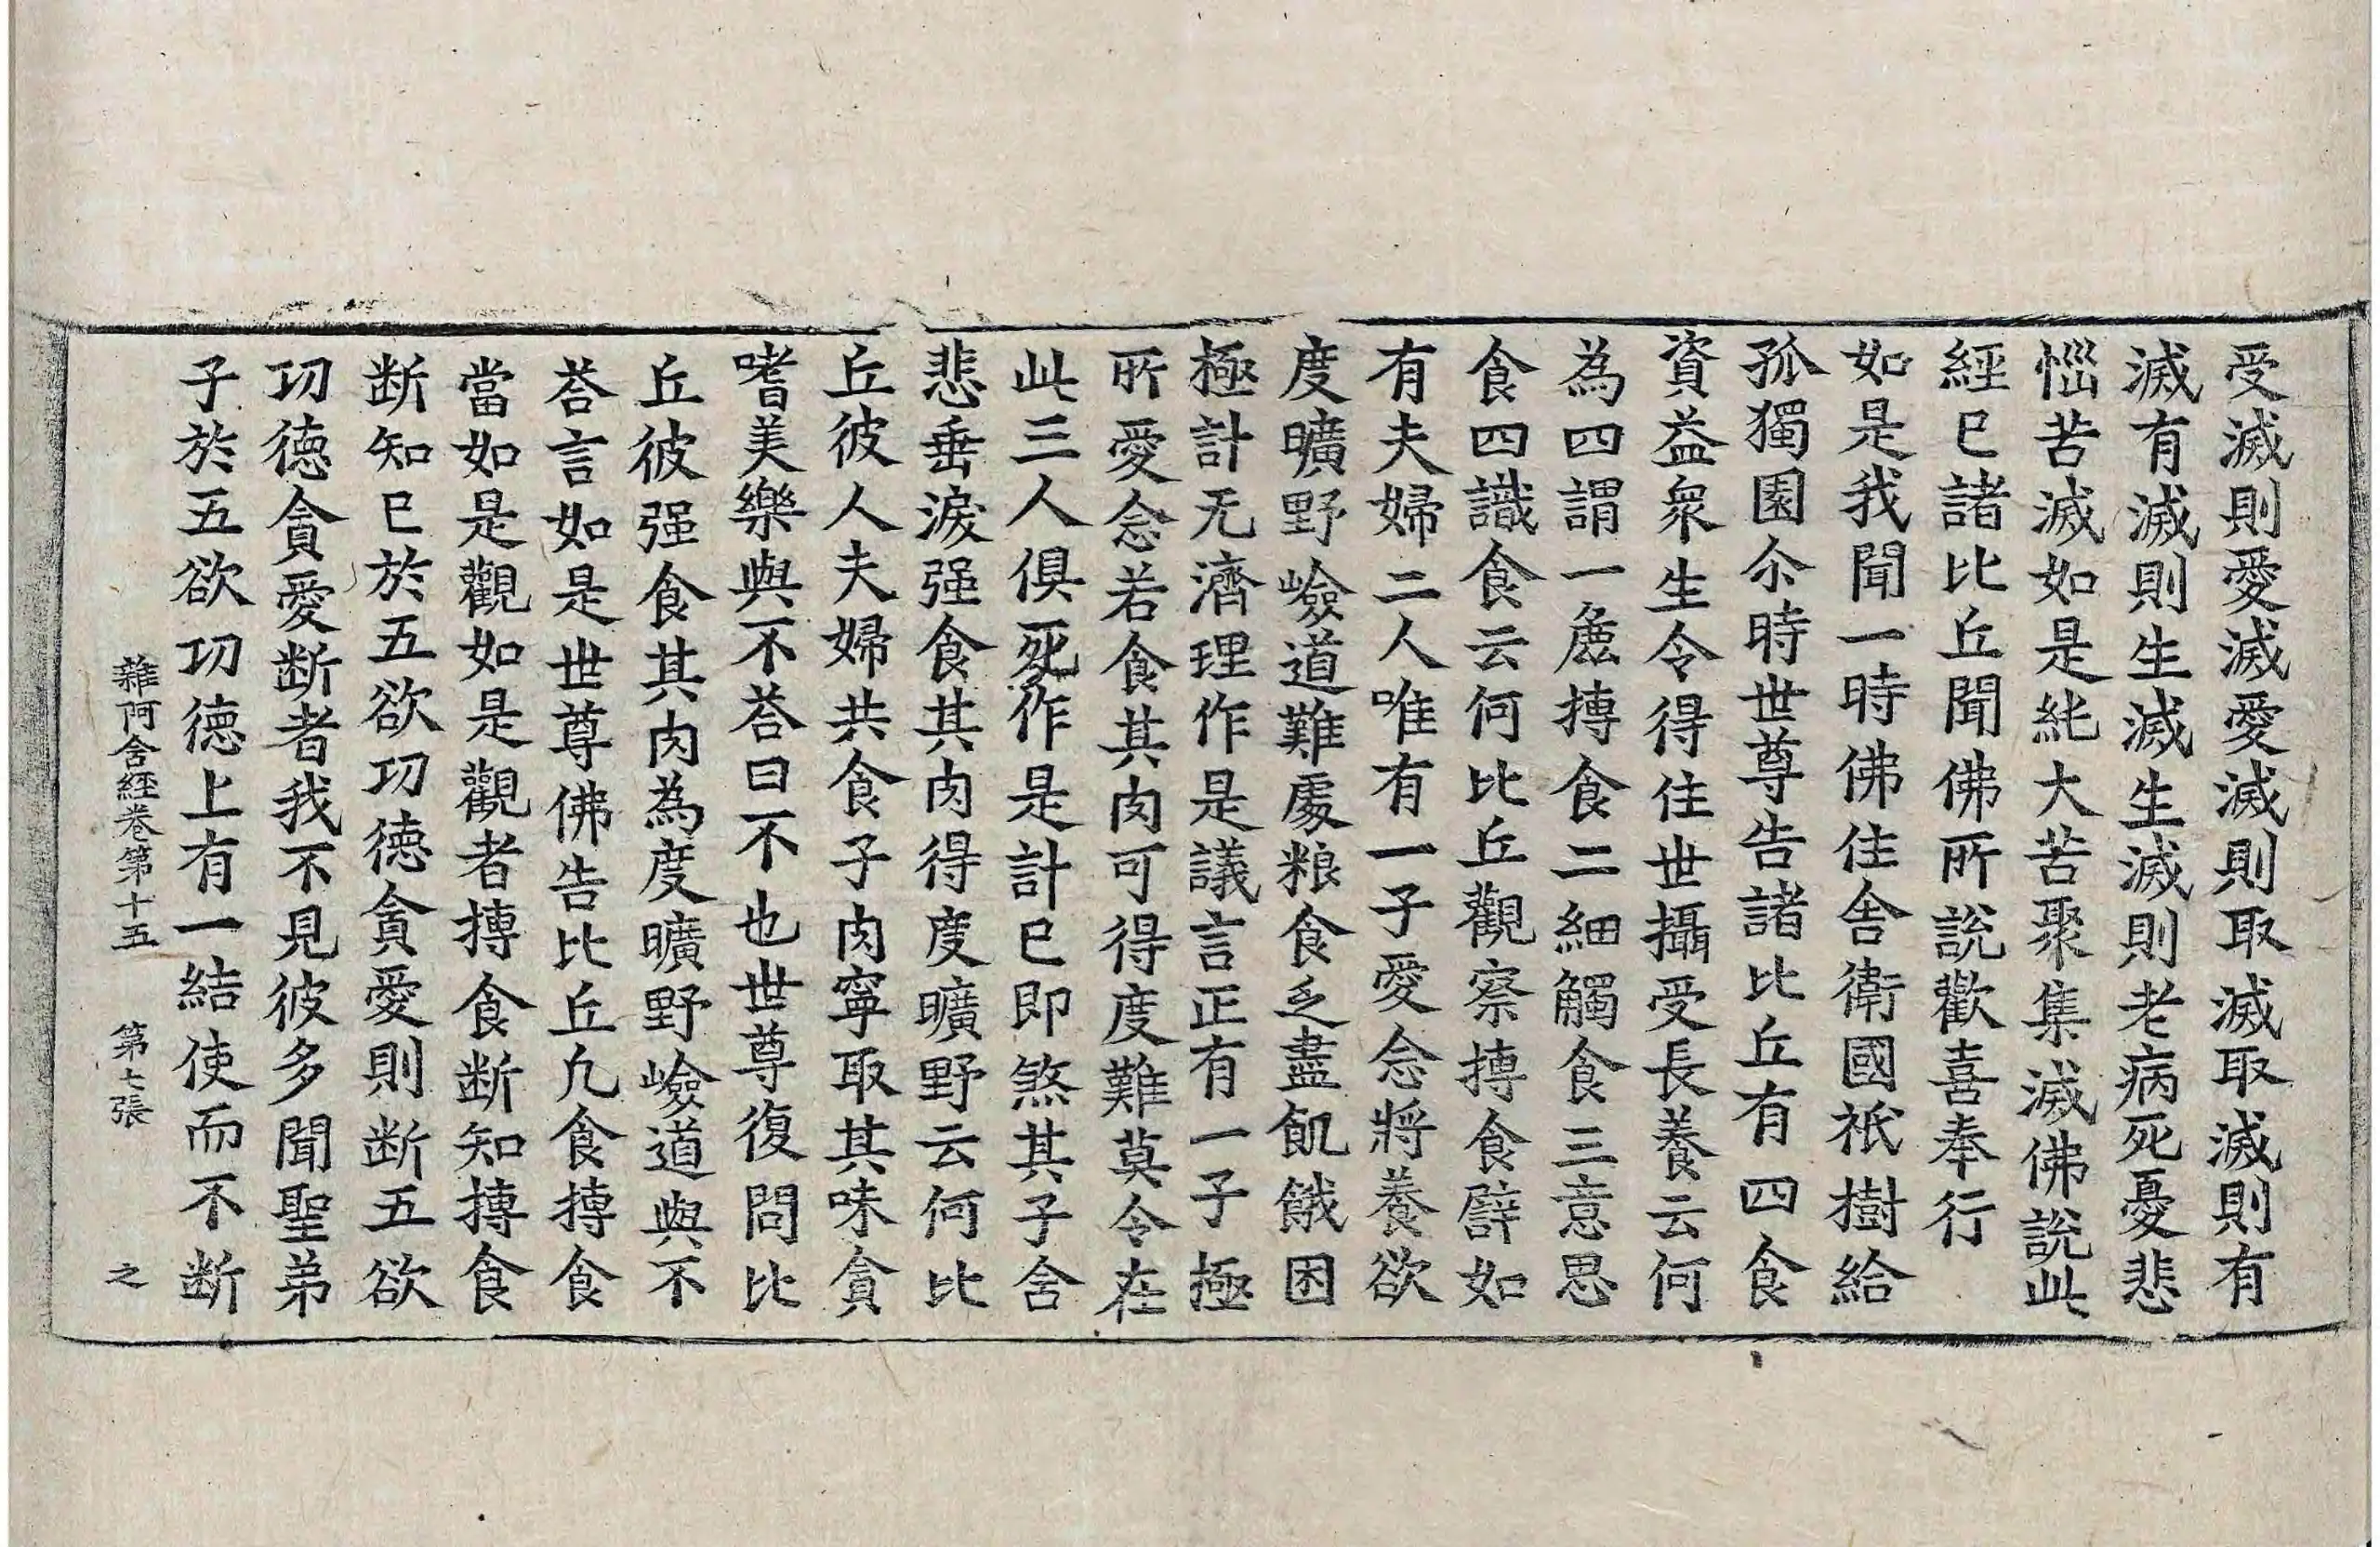 受滅則愛滅愛滅則取滅取滅則有
滅有滅則生滅生滅則老病死憂悲
惱苦滅如是純大苦聚集滅佛說此
經已諸比丘聞佛所說歡喜奉行
如是我聞一時佛住舍衛國祇樹給
孤獨園尒時世尊告諸比丘有四食
資益衆生令得住世攝受長養云何
為四謂一麁摶食二細觸食三意思
食四識食云何比丘觀察摶食譬如
有夫婦二人唯有一子愛念將養欲
度曠野嶮道難處粮食乏盡飢餓困
極計无濟理作是議言正有一子極
所愛念若食其肉可得度難莫令在
此三人俱死作是計已即煞其子含
悲垂淚强食其肉得度曠野云何比
丘彼人夫婦共食子肉寧取其味貪
嗜美樂與不荅曰不也世尊復問比
丘彼强食其肉為度曠野嶮道與不
荅言如是世尊佛告比丘凡食摶食
當如是觀如是觀者摶食断知摶食
断知已於五欲功德貪愛則断五欲
功德貪愛断者我不見彼多聞聖弟
子於五欲功德上有一結使而不断
雜阿含經卷第十五 第七張 之